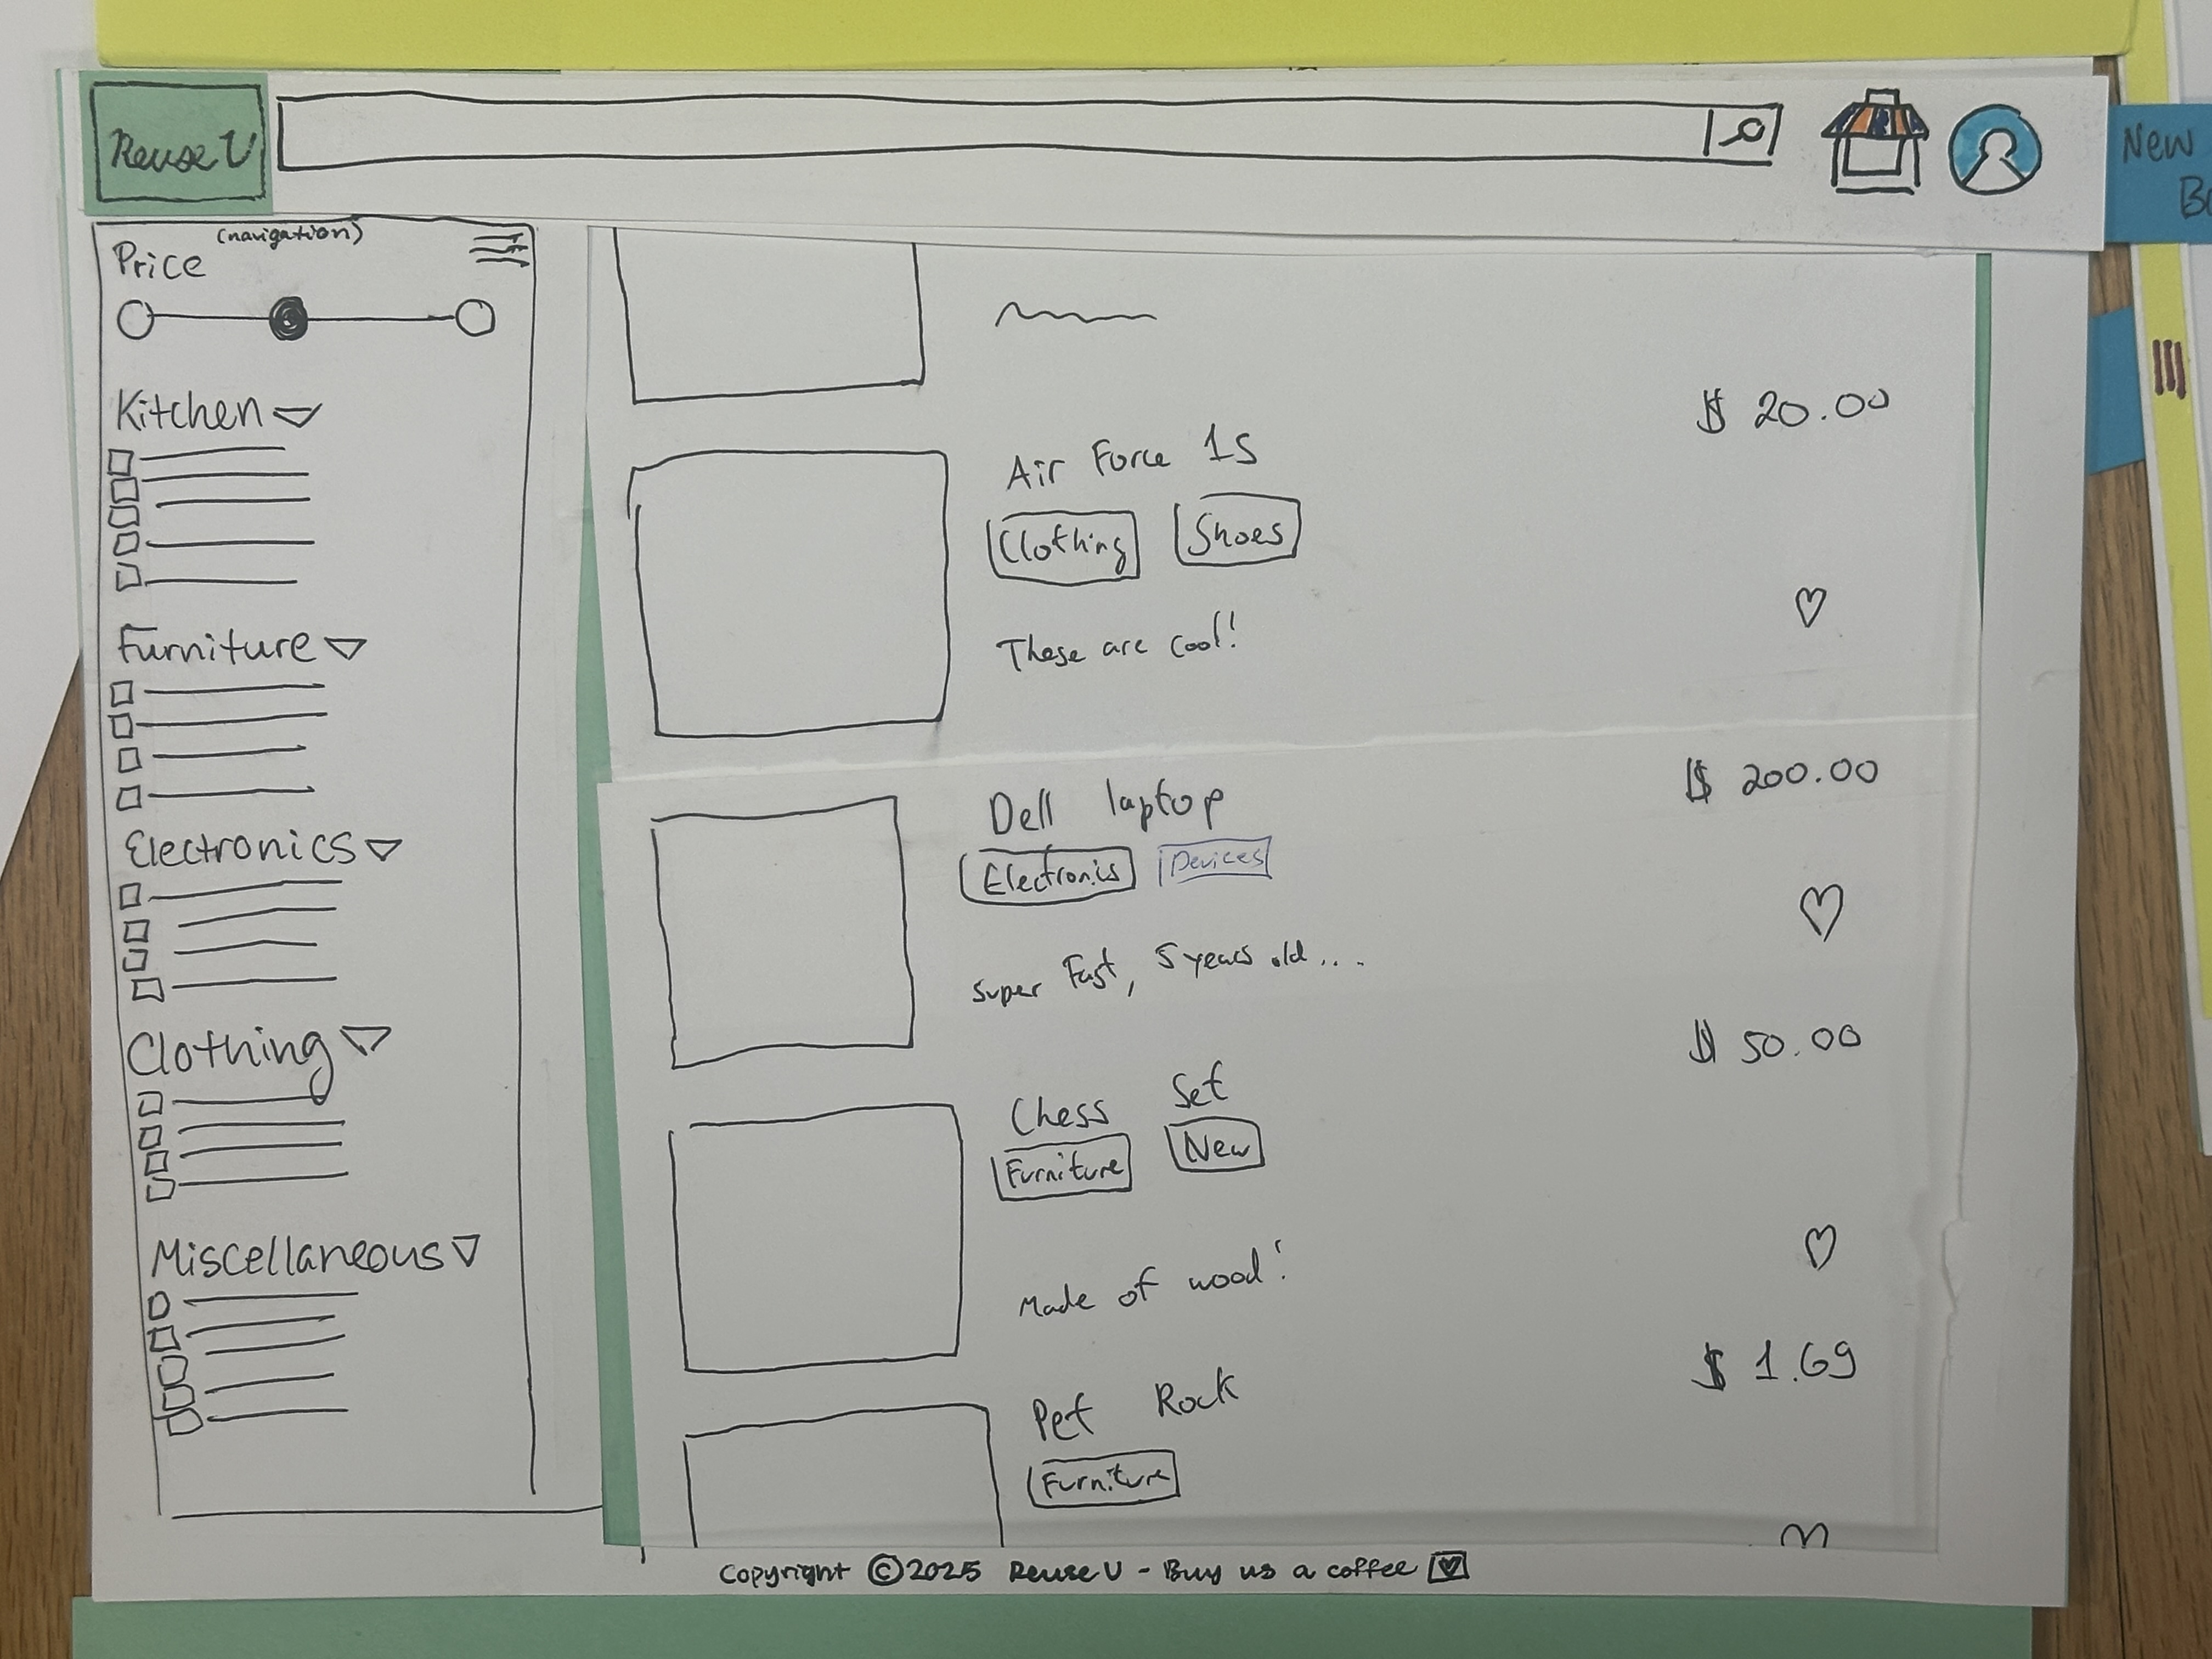 Reuse U
New
(navigation)
Price
Kitchen
Furniture
Electronics
Clothing
Miscellaneous
$ 20.00
Air Force 1s
Clothing Shoes
These are cool!
$ 200.00
Dell laptop
Electronics Devices
Super Fast, 5 years old....
$ 50.00
Chess Set
Furniture New
Made of wood!
$ 1.69
Pet Rock
Furniture
Copyright ©2025 Reuse U - Buy us a coffee